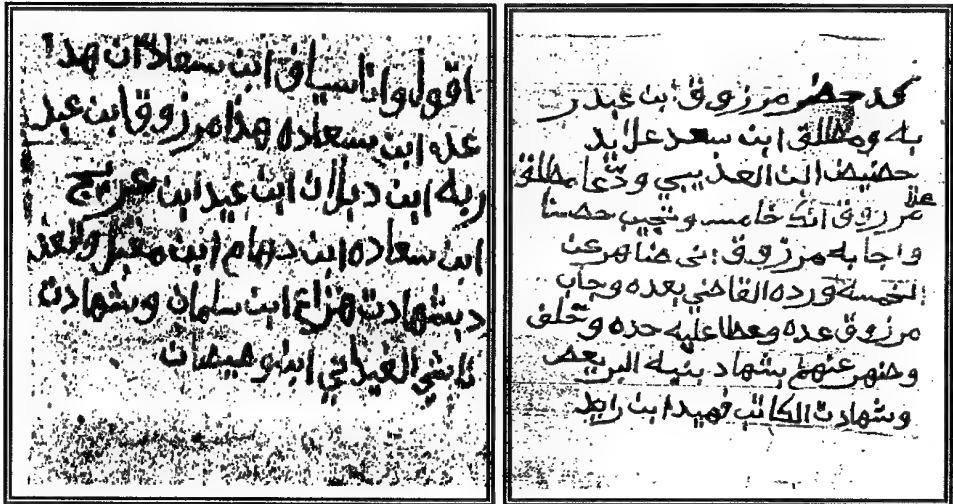 محمد حضر مرزوق ابن عبدر
به ومطلق ابن سعد علا يد
حضيض ابن العذيبي ودعا مطلق
علا
مرزوق انك خامسه وتجيب حصنا
واجابه مرزوق انى ضاهر عن
الخمسه ورده القاضي بعده وجاب
مرزوق عده وعطا عليه حده وتحلف
وضهر عنهم بشهاد بنيه البريعص
وشهادت الكاتب فهيد ابن رابط
اقول وانا سياف ابن سعاده ان هذا
عده ابن سعاده هذا مرزوق ابن عبد
ربه ابن دبلان ابن عيد ابن عريج
ابن سعاده ابن دهام ابن مقبل والعد
د بشهادت هزاع ابن سلمان وبشهادت
ابن وهيضان